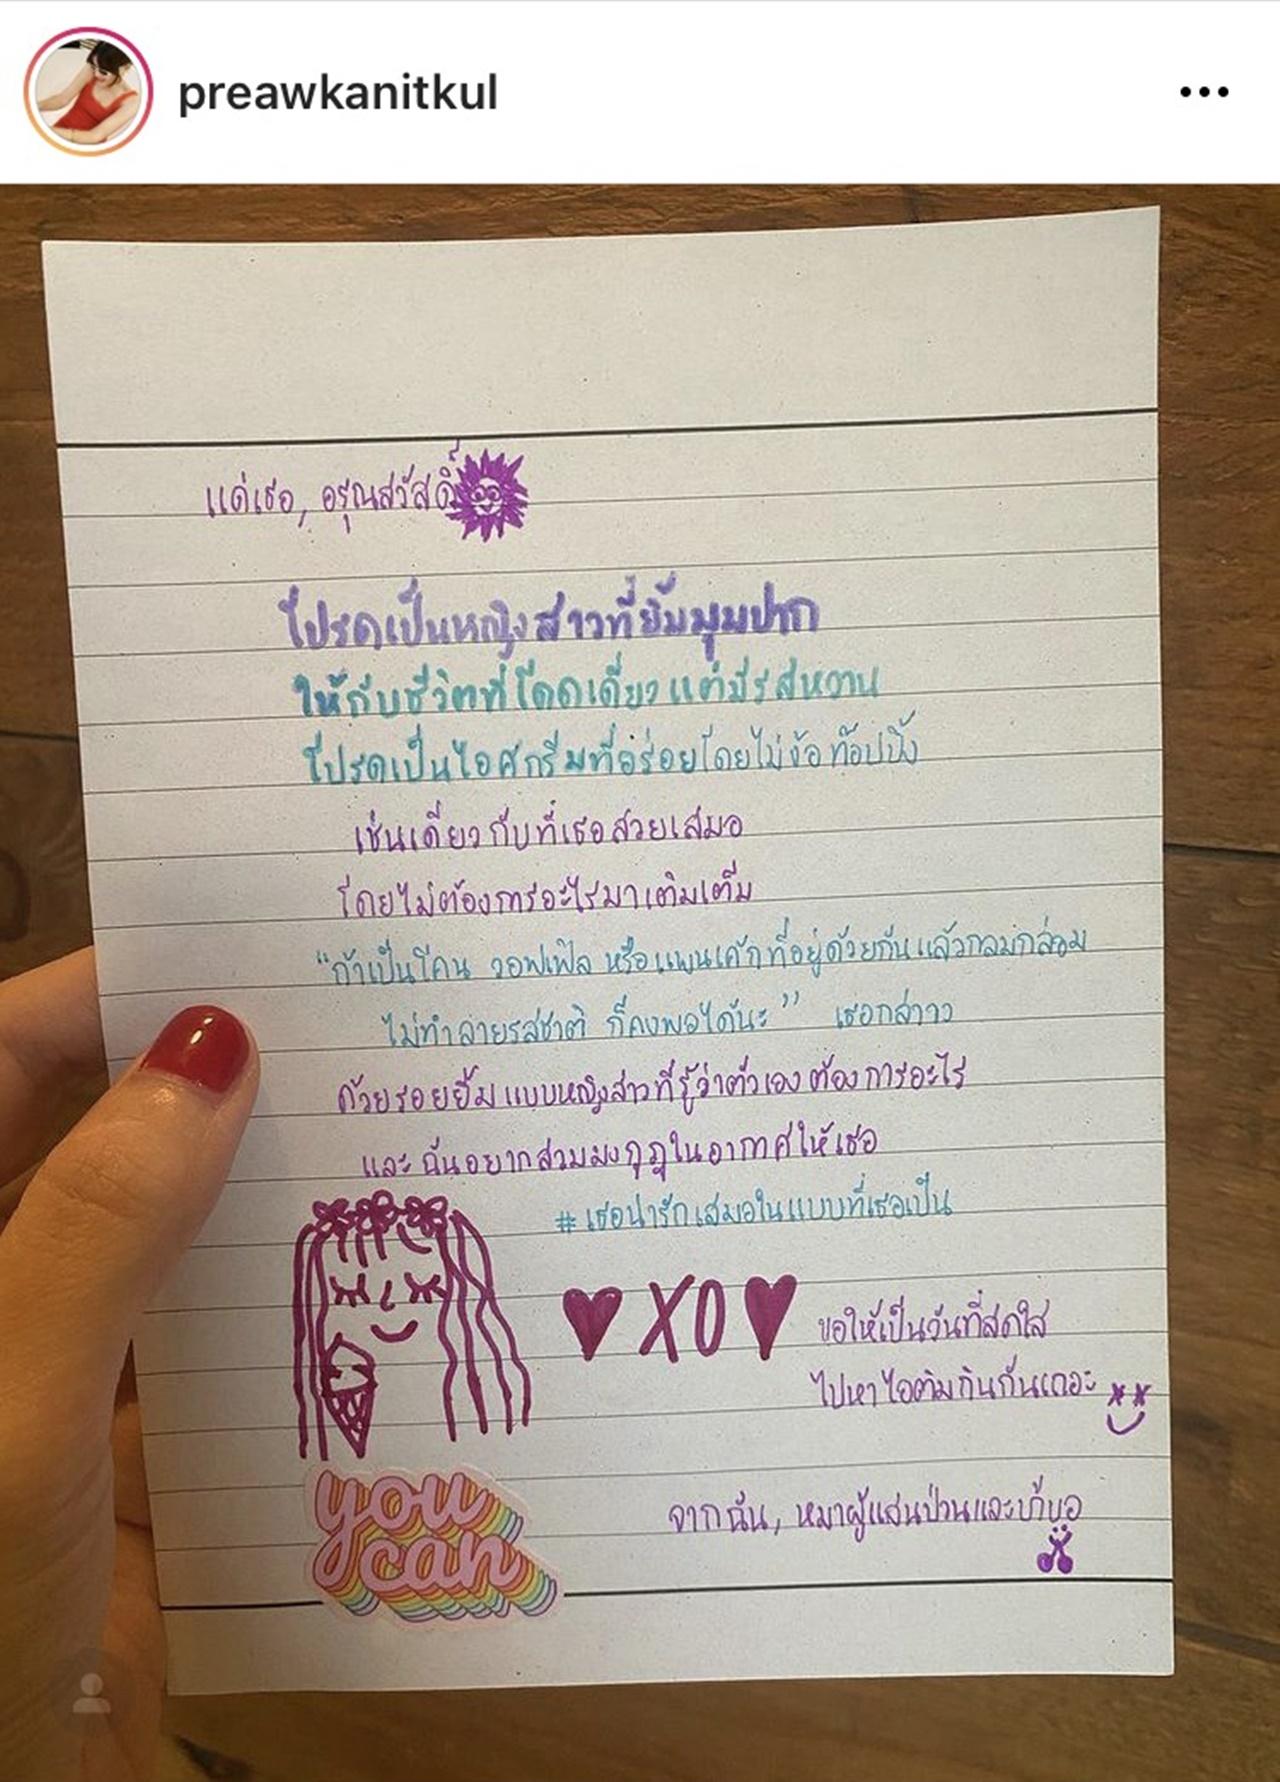 preawkanitkul
แด่เธอ, อรุณสวัสดิ์
โปรดเป็นหญิงสาวที่ยิ้มมุมปาก
ให้กับชีวิตที่โดดเดี่ยวแต่มีรสหวาน
โปรดเป็นไอศกรีมที่อร่อยโดยไม่ง้อท๊อปปิ้ง
เช่นเดียวกับที่เธอสวยเสมอ
โดยไม่ต้องการอะไรมาเติมเต็ม
“ถ้าเป็นโคน วอฟเฟิล หรือแพนเค้กที่อยู่ด้วยกันแล้วกลมกล่อม
ไม่ทำลายรสชาติ ก็คงพอได้นะ” เธอกล่าว
ด้วยรอยยิ้มแบบหญิงสาวที่รู้ว่าตัวเองต้องการอะไร
และฉันอยากสวมมงกุฎในอากาศให้เธอ
#เธอน่ารักเสมอในแบบที่เธอเป็น
XO
ขอให้เป็นวันที่สดใส
ไปหาไอติมกินกันเถอะ
you
can
จากฉัน, หมาผู้แสนป่วนและบ้าบอ